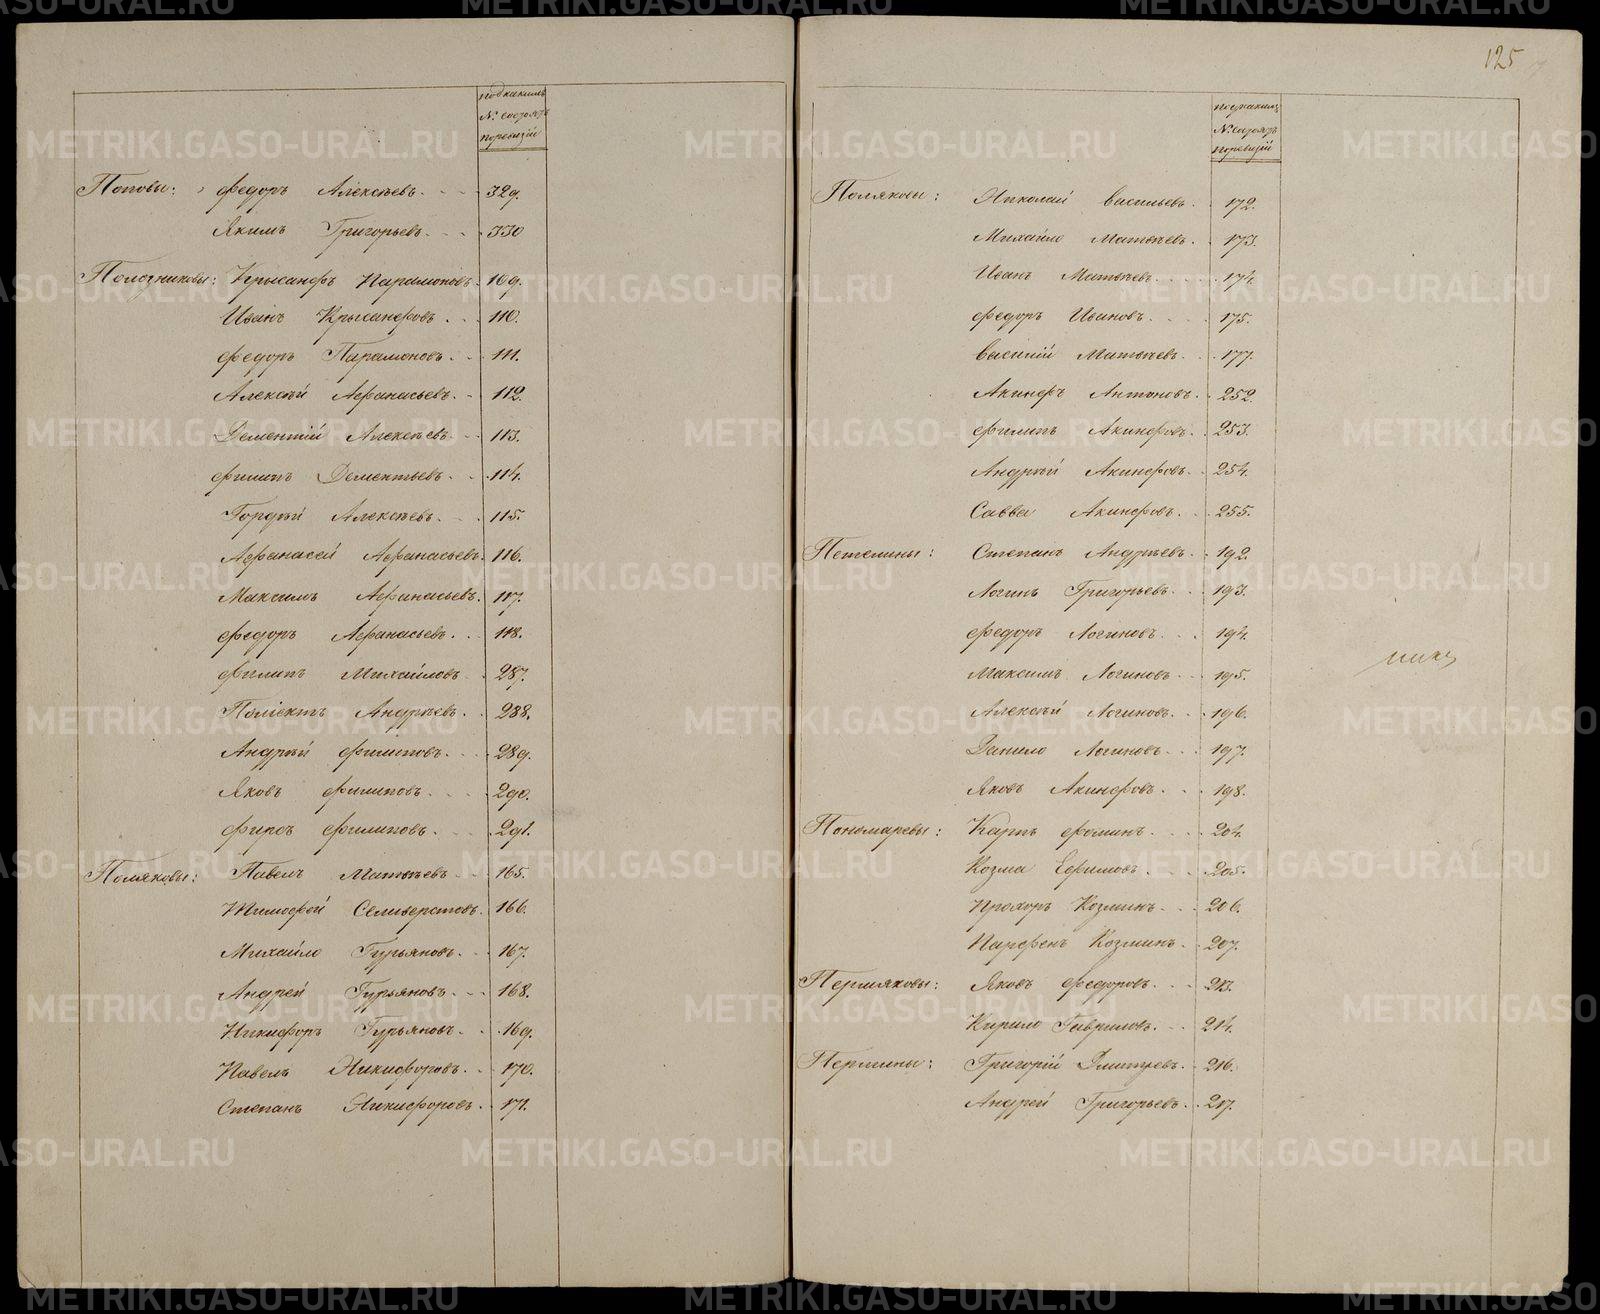 подъ какимъ
№ состоятъ
по ревизiи
Поповы: Федоръ Алексѣевъ 329.
Якимъ Григорьевъ 330
Полозниковы: Крысанфъ Парамоновъ 109.
Иванъ Крысанфовъ 110.
Федоръ Парамоновъ 111.
Алексѣй Афанасьевъ 112.
Дементiй Алексѣевъ 113.
Филипъ Дементьевъ 114.
Гордѣй Алексѣевъ 115.
Афанасей Афанасьевъ 116.
Максимъ Афанасьевъ 117.
Федоръ Афанасьевъ 118.
Филипъ Михайловъ 287.
Полiектъ Андрѣевъ 288.
Андрѣй Филиповъ 289.
Яковъ Филиповъ 290.
Фирсъ Филиповъ 291.
Поляковы: Павелъ Матвѣевъ 165.
Тимофей Селиверстовъ 166.
Михайло Гурьяновъ 167.
Андрей Гурьяновъ 168.
Никифоръ Гурьяновъ 169.
Павелъ Никифоровъ 170.
Степанъ Никифоровъ 171.
125
подъ какимъ
№ состоятъ
по ревизiй
Поляковы: Николай Васильевъ 172.
Михайло Матвѣевъ 173.
Иванъ Матвѣевъ 174.
Федоръ Ивановъ 175.
Василiй Матвѣевъ 177.
Акинфъ Антоновъ 252.
Филипъ Акинфовъ 253.
Андрѣй Акинфовъ 254.
Савва Акинфовъ 255.
Петелины: Степанъ Андрѣевъ 192.
Логинъ Григорьевъ 193.
Федоръ Логиновъ 194.
Максимъ Логиновъ 195.
Алексѣй Логиновъ 196.
Данило Логиновъ 197.
Яковъ Акинфовъ 198.
Пономаревы: Карпъ Фоминъ 204.
Козма Ефимовъ 205.
Прохоръ Козминъ 206.
Парфенъ Козминъ 207.
Пермяковы: Яковъ Федоровъ 213.
Кирило Гавриловъ 214.
Пермины: Григорiй Дмитрiевъ 216.
Андрей Григорьевъ 217.
METRIKI.GASO-URAL.RU